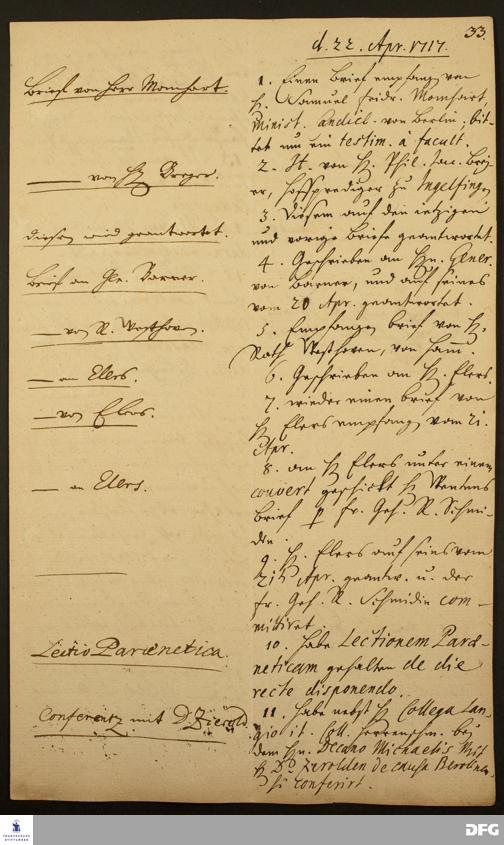 33.
d. 22. Apr. 1717.
Brief von Herr Momhart.
1. Einen Brief empfangen von
H. Samuel Fridr. Momhart,
Minist. Candid. von Berlin, bit-
tet um ein testim. à facult.
— von H. Breyer.
2. It. von H. Phil. Jac. Brey-
er, Hoffprediger zu Ingelfingen
diesen wird geantwortet.
3. Diesem auf den jetzigen
und vorige Briefe geantwortet.
Brief an Gen. Barner.
4. Geschrieben an Hn. Gener.
von Barner, und auf seines
vom 20 Apr. geantwortet.
— von R. Westhoven.
5. Empfangen Brief von H.
Rath Westhoven, von Hamm.
— an Elers.
6. Geschrieben an H. Elers.
— von Elers.
7. wieder einen Brief von
H. Elers empfangen vom 21.
Apr.
— an Elers.
8. an H. Elers unter einem
couvert geschickt H.
Brief p fr. Geh. R. Schmi-
din.
9. H. Elers auf seins vom
21 Apr. geantw. u. der
fr. Geh. R. Schmidin com-
Lectio Paraenetica.
10. Habe Lectionem Parae-
neticam gehalten de die
recte disponendo.
Conferentz mit D. Zierold.
11. Habe nebst H. Collega Lan-
gio it. Coll. Herrnschm. bei
dem Hn. Decano Michaelis mit
H. D. Zierolden de causa
conferirt.
FRANCKESCHE STIFTUNGEN
DFG